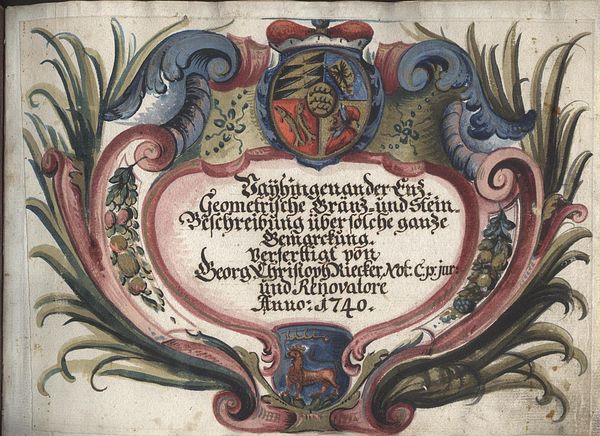 Vaÿhingen an der Enz.
Geometrische Gränz- und Stein-
Beschreibung über solche ganze
Gemarckung.
Verferttigt von
Georg Christoph Riecker, Not: C. p. jur:
und Renovatore
Anno: 1740.